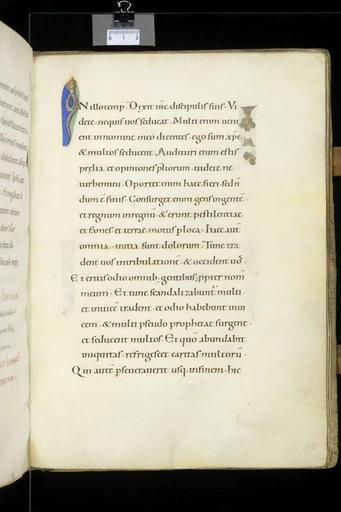 N illo temp̄ Dixit iħc discipulis suis · Vi
dete nequis uos seducat · Multi enim ueni
ent in nomine meo dicentes · ego sum xp̄c
& multos seducent · Audituri enim estis
prȩlia · et opiniones prliorum · uidete ne
turbemini · Oportet enim haec fieri · sed n̄
dum ē finis · Consurget enim gens in gentē
et regnum in regnū · & erunt pestilentiae
et fames et terrae motus p loca · haec aut̄
omnia · initia sunt dolorum · Tunc tra
dent uos in tribulationē · & occident uos ·
E t eritis odio omnib; gentibus; ppter nom̄
meum · Et tunc scandalizabunt̄ multi ·
et inuicē tradent · et odio habebunt inui
cem · & multi pseudo prophetae surgent ·
et seducent multos · Et qm̄ abundabit
iniquitas · refrigescet caritas multorū ·
Q ui autē pseuerauerit usq; in finem · hic